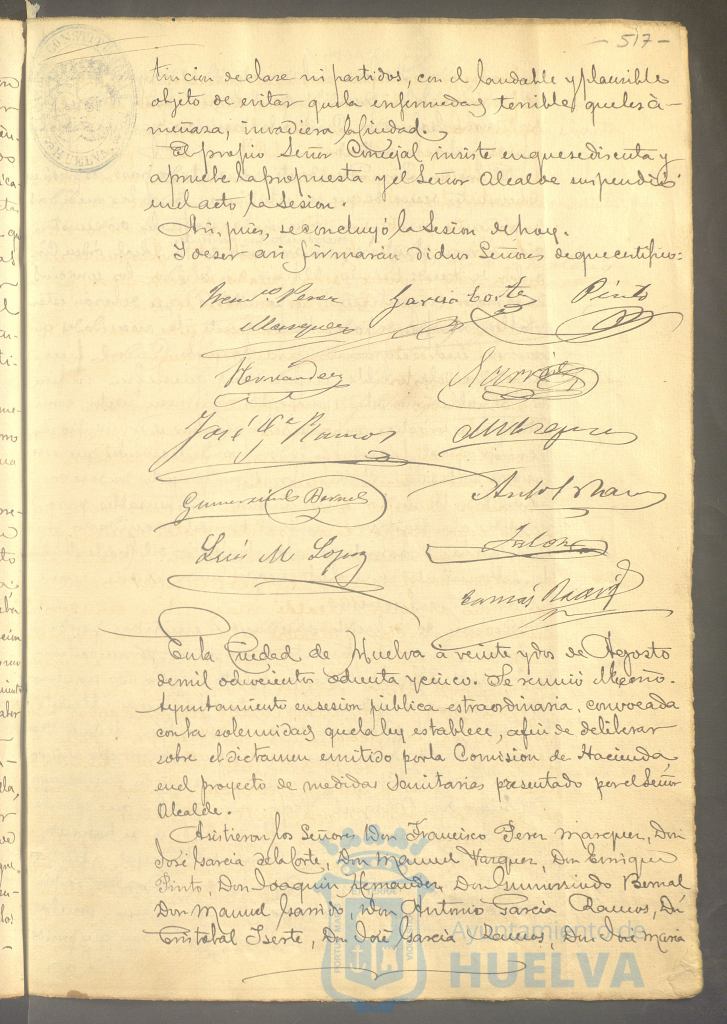 - 517 -
tincion de clase ni partidos, con el laudable y plausible
objeto de evitar que la enfermedad terrible que les à-
menaza, invadiera la Ciudad.
El propio Señor Concejal insiste en que se discuta y
apruebe la propuesta y el Señor Alcalde suspendió
en el acto la Sesion.
Asi, pues, se concluyó la Sesion de hoy.
Y de ser asi firmarán dichos Señores de que certifico:
Perez Garcia Corte Pinto
Marquez
Hernandez
José Gª Ramos
Gumersindo Bernal
Luis M Lopez
Tomás
En la Ciudad de Huelva à veinte y dos de Agosto
de mil ochocientos ochenta y cinco. Se reunió el Excmo.
Ayuntamiento en sesion pública estraordinaria, convocada
con la solemnidad que la ley establece, a fin de deliberar
sobre el dictamen emitido por la Comision de Hacienda,
en el proyecto de medidas sanitarias presentado por el Señor
Alcalde.
Asistieron los Señores Don Francisco Perez Marquez, Don
José Garcia de la Corte, Don Manuel Vazquez, Don Enrique
Pinto, Don Joaquin Hernandez, Don Gumersindo Bernal
Don Manuel Garrido, Don Antonio Garcia Ramos, Dn
Cristobal Iserte, Don José Garcia Ramos, Don José Maria
Ayuntamiento de
HUELVA